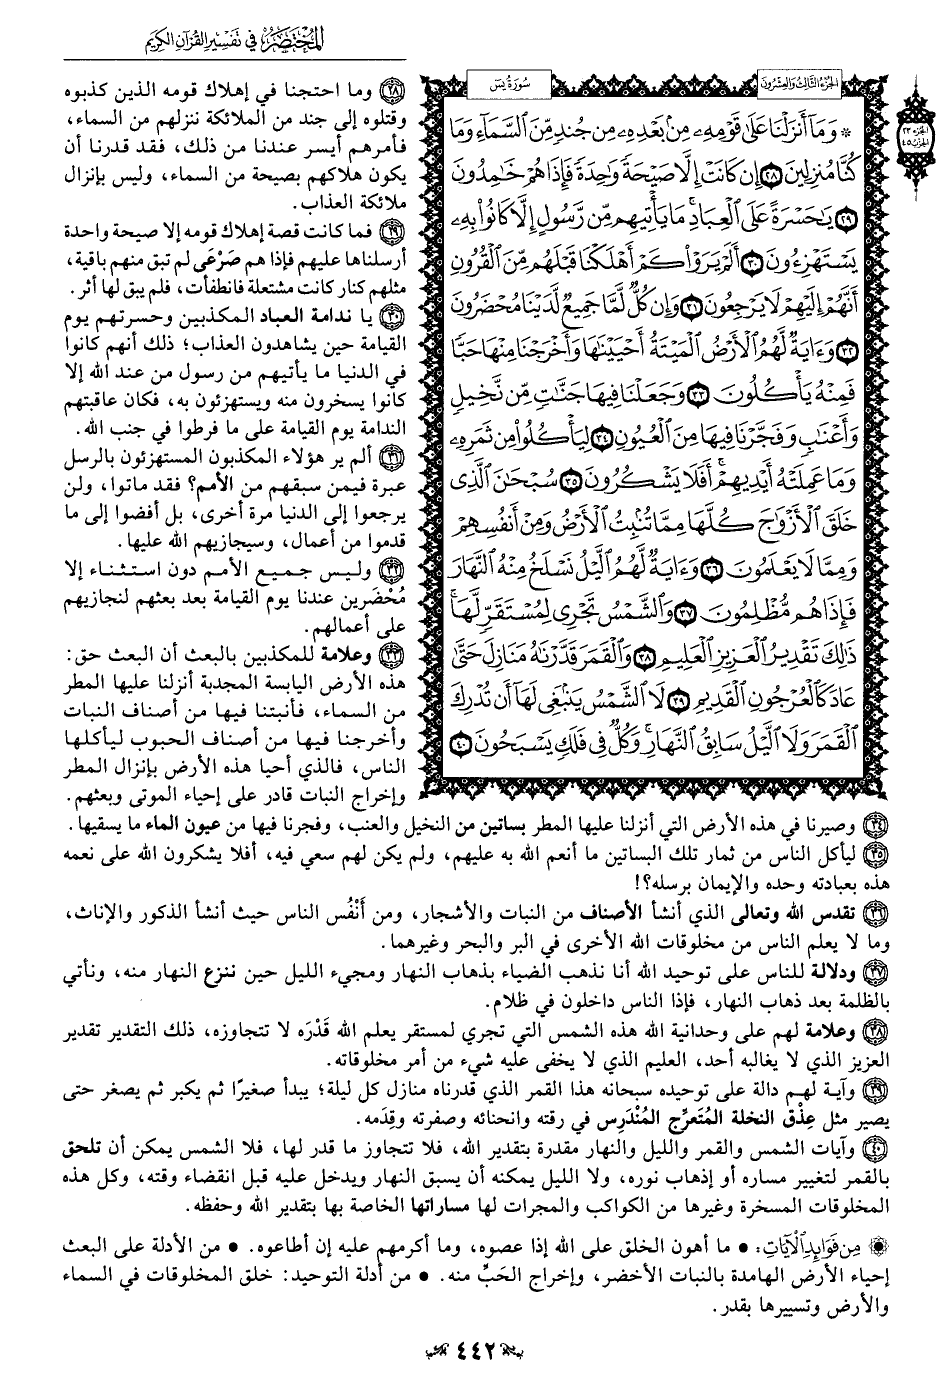 المختصر في تفسير القرآن الكريم
الجزء الثالث والعشرون
سورة يس
الجزء ٢٣
الحزب ٤٥
* وَمَآ أَنزَلْنَا عَلَىٰ قَوْمِهِۦ مِنۢ بَعْدِهِۦ مِن جُندٍ مِّنَ ٱلسَّمَآءِ وَمَا
كُنَّا مُنزِلِينَ ٢٨ إِن كَانَتْ إِلَّا صَيْحَةً وَٰحِدَةً فَإِذَا هُمْ خَٰمِدُونَ
٢٩ يَٰحَسْرَةً عَلَى ٱلْعِبَادِ ۚ مَا يَأْتِيهِم مِّن رَّسُولٍ إِلَّا كَانُوا۟ بِهِۦ
يَسْتَهْزِءُونَ ٣٠ أَلَمْ يَرَوْا۟ كَمْ أَهْلَكْنَا قَبْلَهُم مِّنَ ٱلْقُرُونِ
أَنَّهُمْ إِلَيْهِمْ لَا يَرْجِعُونَ ٣١ وَإِن كُلٌّ لَّمَّا جَمِيعٌ لَّدَيْنَا مُحْضَرُونَ
٣٢ وَءَايَةٌ لَّهُمُ ٱلْأَرْضُ ٱلْمَيْتَةُ أَحْيَيْنَٰهَا وَأَخْرَجْنَا مِنْهَا حَبًّا
فَمِنْهُ يَأْكُلُونَ ٣٣ وَجَعَلْنَا فِيهَا جَنَّٰتٍ مِّن نَّخِيلٍ
وَأَعْنَٰبٍ وَفَجَّرْنَا فِيهَا مِنَ ٱلْعُيُونِ ٣٤ لِيَأْكُلُوا۟ مِن ثَمَرِهِۦ
وَمَا عَمِلَتْهُ أَيْدِيهِمْ ۖ أَفَلَا يَشْكُرُونَ ٣٥ سُبْحَٰنَ ٱلَّذِى
خَلَقَ ٱلْأَزْوَٰجَ كُلَّهَا مِمَّا تُنۢبِتُ ٱلْأَرْضُ وَمِنْ أَنفُسِهِمْ
وَمِمَّا لَا يَعْلَمُونَ ٣٦ وَءَايَةٌ لَّهُمُ ٱلَّيْلُ نَسْلَخُ مِنْهُ ٱلنَّهَارَ
فَإِذَا هُم مُّظْلِمُونَ ٣٧ وَٱلشَّمْسُ تَجْرِى لِمُسْتَقَرٍّ لَّهَا ۚ
ذَٰلِكَ تَقْدِيرُ ٱلْعَزِيزِ ٱلْعَلِيمِ ٣٨ وَٱلْقَمَرَ قَدَّرْنَٰهُ مَنَازِلَ حَتَّىٰ
عَادَ كَٱلْعُرْجُونِ ٱلْقَدِيمِ ٣٩ لَا ٱلشَّمْسُ يَنۢبَغِى لَهَآ أَن تُدْرِكَ
ٱلْقَمَرَ وَلَا ٱلَّيْلُ سَابِقُ ٱلنَّهَارِ ۚ وَكُلٌّ فِى فَلَكٍ يَسْبَحُونَ ٤٠
٢٨ وما احتجنا في إهلاك قومه الذين كذبوه
وقتلوه إلى جند من الملائكة ننزلهم من السماء،
فأمرهم أيسر عندنا من ذلك، فقد قدرنا أن
يكون هلاكهم بصيحة من السماء، وليس بإنزال
ملائكة العذاب.
٢٩ فما كانت قصة إهلاك قومه إلا صيحة واحدة
أرسلناها عليهم فإذا هم صَرْعَى لم تبق منهم باقية،
مثلهم كنار كانت مشتعلة فانطفأت، فلم يبق لها أثر.
٣٠ يا ندامة العباد المكذبين وحسرتهم يوم
القيامة حين يشاهدون العذاب؛ ذلك أنهم كانوا
في الدنيا ما يأتيهم من رسول من عند الله إلا
كانوا يسخرون منه ويستهزئون به، فكان عاقبتهم
الندامة يوم القيامة على ما فرطوا في جنب الله.
٣١ ألم ير هؤلاء المكذبون المستهزئون بالرسل
عبرة فيمن سبقهم من الأمم؟ فقد ماتوا، ولن
يرجعوا إلى الدنيا مرة أخرى، بل أفضوا إلى ما
قدموا من أعمال، وسيجازيهم الله عليها.
٣٢ وليس جميع الأمم دون استثناء إلا
مُحْضَرين عندنا يوم القيامة بعد بعثهم لنجازيهم
على أعمالهم.
٣٣ وعلامة للمكذبين بالبعث أن البعث حق:
هذه الأرض اليابسة المجدبة أنزلنا عليها المطر
من السماء، فأنبتنا فيها من أصناف النبات
وأخرجنا فيها من أصناف الحبوب ليأكلها
الناس، فالذي أحيا هذه الأرض بإنزال المطر
وإخراج النبات قادر على إحياء الموتى وبعثهم.
٣٤ وصيرنا في هذه الأرض التي أنزلنا عليها المطر بساتين من النخيل والعنب، وفجرنا فيها من عيون الماء ما يسقيها.
٣٥ ليأكل الناس من ثمار تلك البساتين ما أنعم الله به عليهم، ولم يكن لهم سعي فيه، أفلا يشكرون الله على نعمه
هذه بعبادته وحده والإيمان برسله؟!
٣٦ تقدس الله وتعالى الذي أنشأ الأصناف من النبات والأشجار، ومن أَنْفُس الناس حيث أنشأ الذكور والإناث،
وما لا يعلم الناس من مخلوقات الله الأخرى في البر والبحر وغيرهما.
٣٧ ودلالة للناس على توحيد الله أنا نذهب الضياء بذهاب النهار ومجيء الليل حين ننزع النهار منه، ونأتي
بالظلمة بعد ذهاب النهار، فإذا الناس داخلون في ظلام.
٣٨ وعلامة لهم على وحدانية الله هذه الشمس التي تجري لمستقر يعلم الله قَدْرَه لا تتجاوزه، ذلك التقدير تقدير
العزيز الذي لا يغالبه أحد، العليم الذي لا يخفى عليه شيء من أمر مخلوقاته.
٣٩ وآية لهم دالة على توحيده سبحانه هذا القمر الذي قدرناه منازل كل ليلة؛ يبدأ صغيرًا ثم يكبر ثم يصغر حتى
يصير مثل عِذْق النخلة المُتَعرِّج المُنْدَرِس في رقته وانحنائه وصفرته وقِدَمه.
٤٠ وآيات الشمس والقمر والليل والنهار مقدرة بتقدير الله، فلا تتجاوز ما قدر لها، فلا الشمس يمكن أن تلحق
بالقمر لتغيير مساره أو إذهاب نوره، ولا الليل يمكنه أن يسبق النهار ويدخل عليه قبل انقضاء وقته، وكل هذه
المخلوقات المسخرة وغيرها من الكواكب والمجرات لها مساراتها الخاصة بها بتقدير الله وحفظه.
من فوائد الآيات: • ما أهون الخلق على الله إذا عصوه، وما أكرمهم عليه إن أطاعوه. • من الأدلة على البعث
إحياء الأرض الهامدة بالنبات الأخضر، وإخراج الحَبِّ منه. • من أدلة التوحيد: خلق المخلوقات في السماء
والأرض وتسييرها بقدر.
٤٤٢